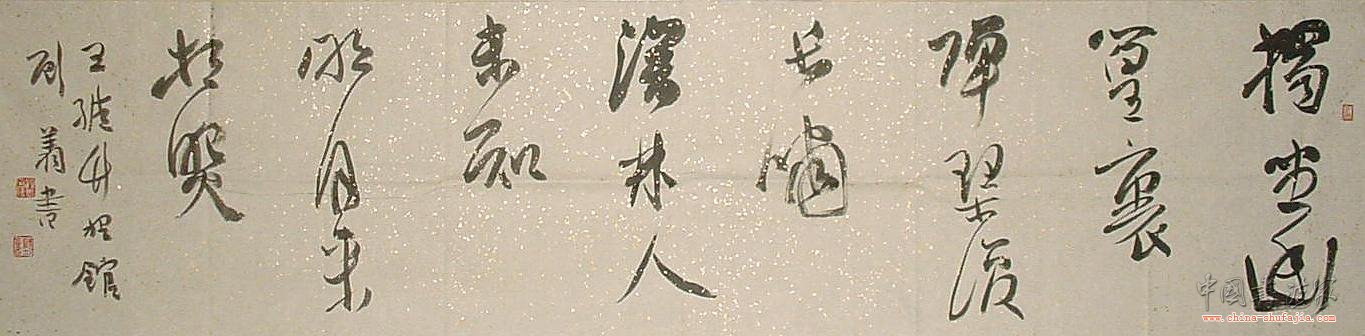 獨坐幽
篁裏
彈琴復
長嘯
深林人
未知
明月來
相照
王維竹裡館
劉 書
中國書法家
www.china-shufajia.com